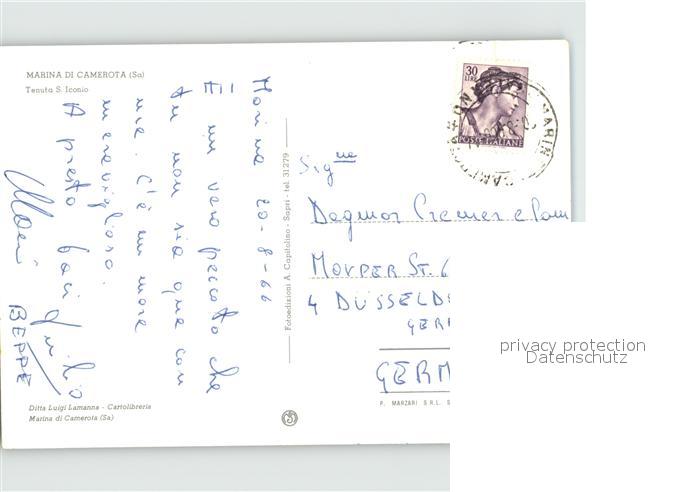 MARINA DI CAMEROTA (Sa)
Tenuta S. Iconio
Marina 20-8-66
È un vero peccato che
tu non sia qua con
me. C'è un mare
meraviglioso.
A presto baci Giulio
BEPPE
Ditta Luigi Lamanna - Cartolibreria
Marina di Camerota (Sa)
Fotoedizioni A. Capitolino - Sapri - tel. 31279
30
LIRE
POSTE ITALIANE
MARIN
Sig.ne
Dagmar Cremer e
ST. 6
4 DÜSSELD
GER
GERM
P. MARZARI S.R.L. S
privacy protection
Datenschutz